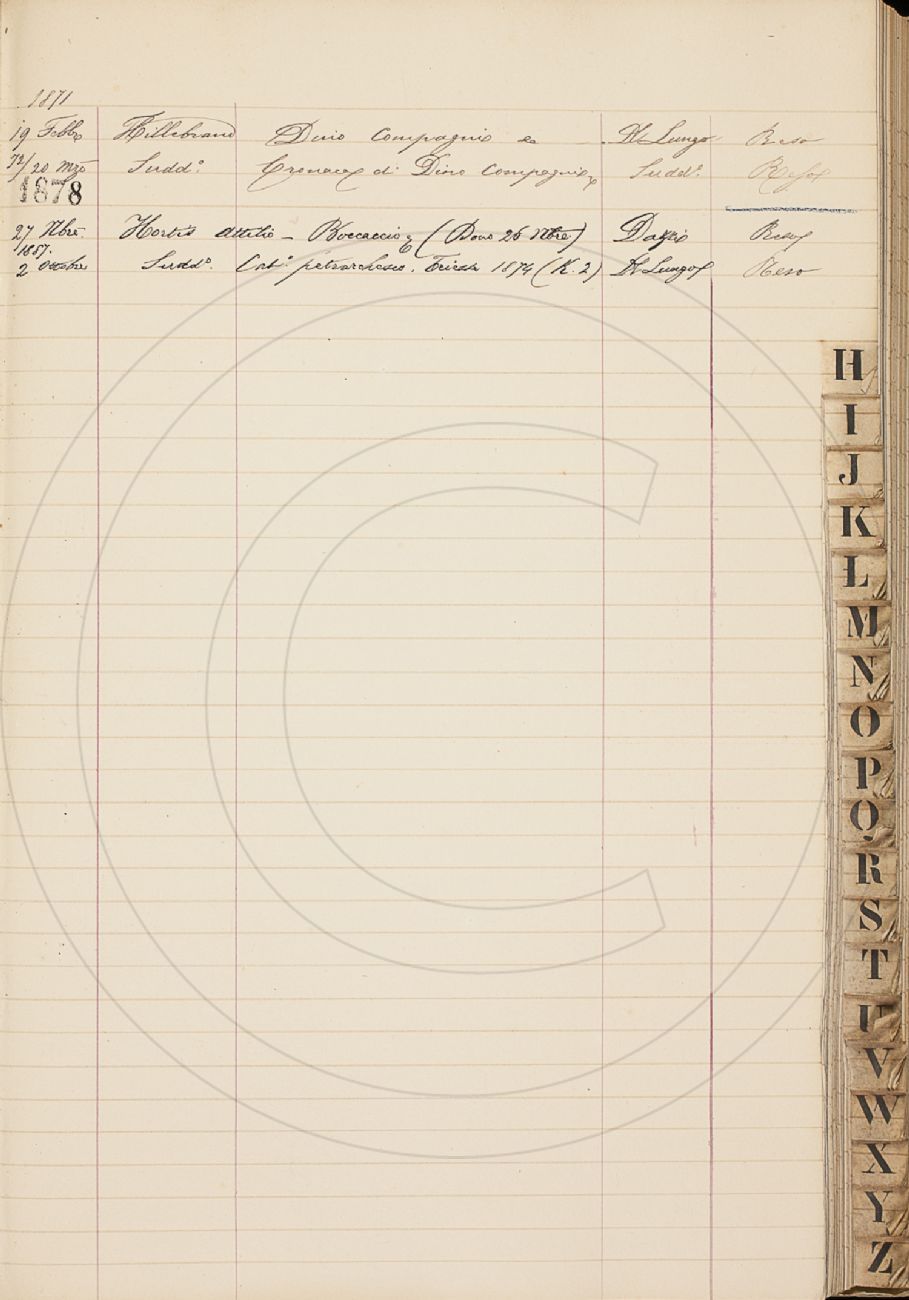 1871
19 Febb Hillebrand Dino Compagni Del Lungo Reso
72/20 Mzo Sudd.º Cronaca di Dino Compagni Sudd.º Reso
1878
27 9bre Hortis Attilio – Boccaccio (Dono 26 9bre) Dazzi Reso
1887.
2 Ottobre Sudd.º Cat.º petrarchesco. Trieste 1874 (K. 2) Del Lungo Reso
H
I
J
K
L
M
N
O
P
Q
R
S
T
U
V
W
X
Y
Z